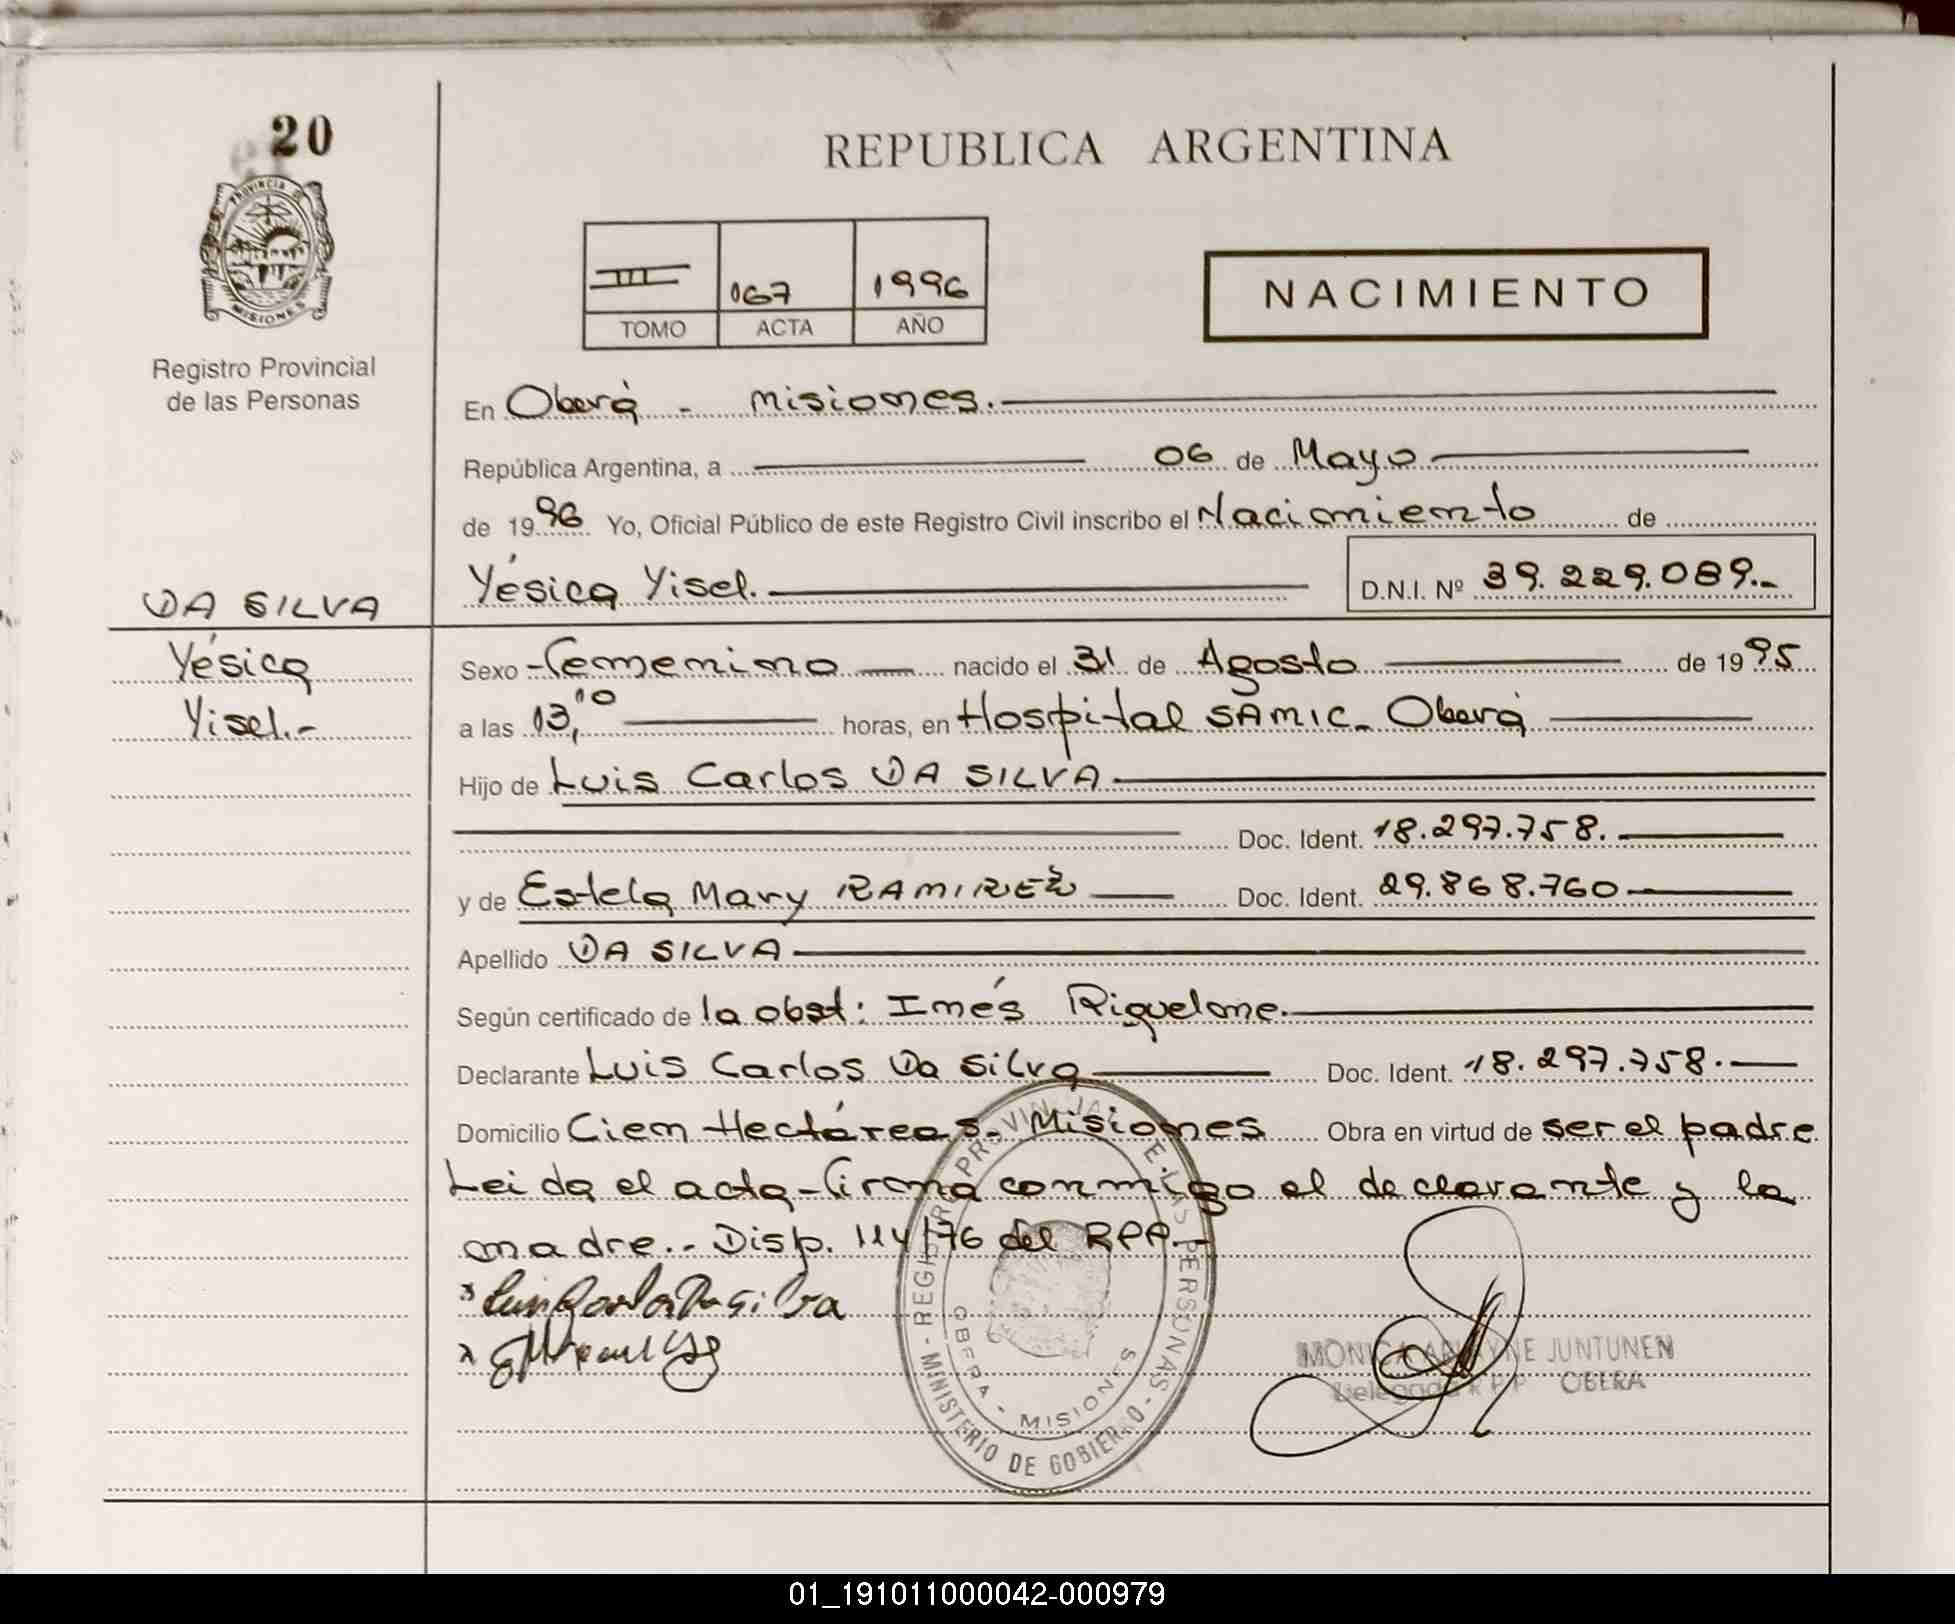 20
PROVINCIA DE
MISIONES
Registro Provincial
de las Personas
REPUBLICA ARGENTINA
III 067 1996
TOMO ACTA AÑO
NACIMIENTO
En Oberá - Misiones.
República Argentina, a 06 de Mayo
de 1996 Yo, Oficial Público de este Registro Civil inscribo el Nacimiento de
Yésica Yisel. D.N.I. Nº 39.229.089.-
DA SILVA
Yésica
Yisel.-
Sexo Femenino nacido el 31 de Agosto de 1995
a las 13,10 horas, en Hospital SAMIC- Oberá
Hijo de Luis Carlos DA SILVA
Doc. Ident. 18.297.758.
y de Estela Mary RAMIREZ Doc. Ident. 29.868.760
Apellido DA SILVA
Según certificado de la obst: Inés Riquelme.
Declarante Luis Carlos Da Silva Doc. Ident. 18.297.758.
Domicilio Cien Hectáreas- Misiones Obra en virtud de ser el padre
Leida el acta firma conmigo el declarante y la
madre.- Disp. 114/76 del RPP.-
Luis Carlos Da Silva
REGISTRO PROVINCIAL DE LAS PERSONAS
MINISTERIO DE GOBIERNO
OBERA - MISIONES
MONICA JUNTUNEN
Delegada R P P OBERA
01_191011000042-000979